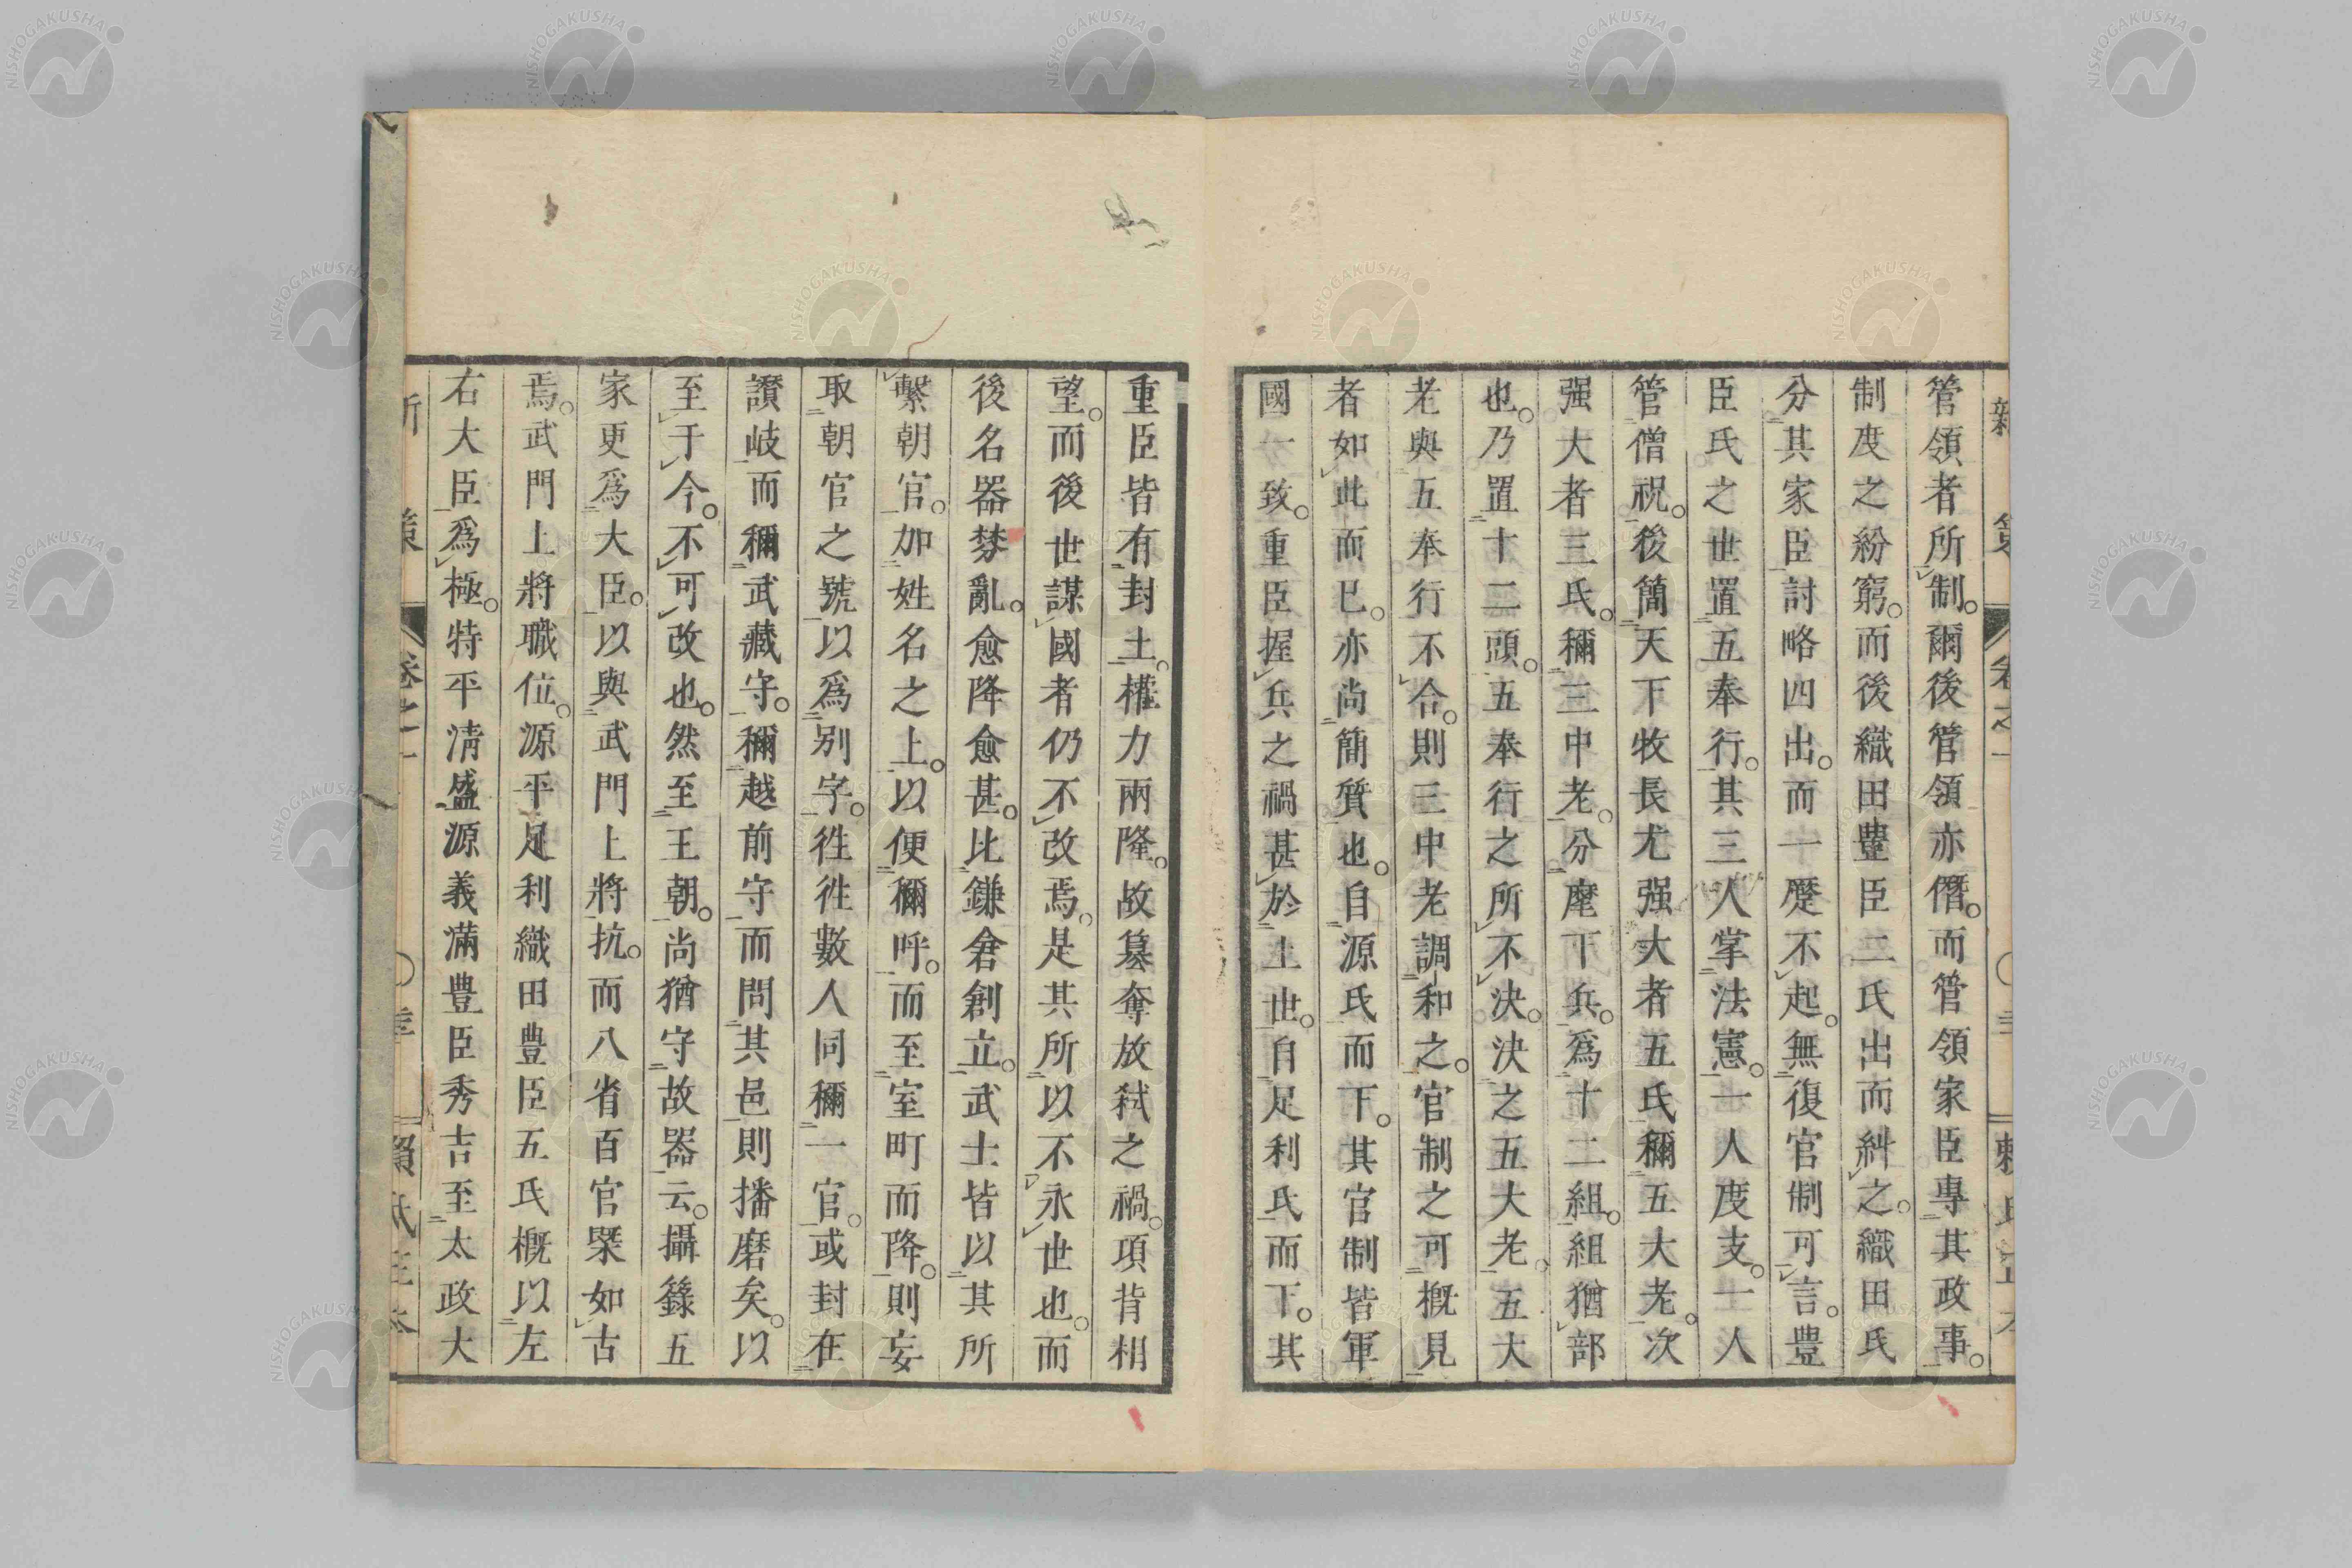 管領者所制。爾後管領亦僭。而管領家臣專其政事。
制度之紛窮。而後織田豊臣二氏出而糾之。織田氏
分其家臣討略四出。而一蹷不起。無復官制可言。豊
臣氏之世置五奉行。其三人掌法憲。一人度支。一人
管僧祝。後簡天下牧長尤强大者五氏稱五大老。次
强大者三氏。稱三中老。分麾下兵。爲十二組。組猶部
也。乃置十二頭。五奉行之所不決。決之五大老。五大
老與五奉行不合。則三中老調和之。官制之可概見
者如此而已。亦尚簡質也。自源氏而下。其官制皆軍
國一致。重臣握兵之禍甚於上世。自足利氏而下。其
重臣皆有封土。權力兩隆。故簒奪放弑之禍。項背相
望。而後世謀國者仍不改焉。是其所以不永世也。而
後名器棼亂。愈降愈甚。比鎌倉創立。武士皆以其所
繫朝官。加姓名之上。以便稱呼。而至室町而降。則妄
取朝官之號以爲別字。徃徃數人同稱一官。或封在
讃岐而稱武藏守。稱越前守而問其邑則播磨矣。以
至于今。不可改也。然至王朝。尚猶守故器云。攝籙五
家更爲大臣。以與武門上將抗。而八省百官槩如古
焉。武門上將職位。源平足利織田豊臣五氏概以左
右大臣爲極。特平清盛源義滿豊臣秀吉至太政大
NISHOGAKUSHA